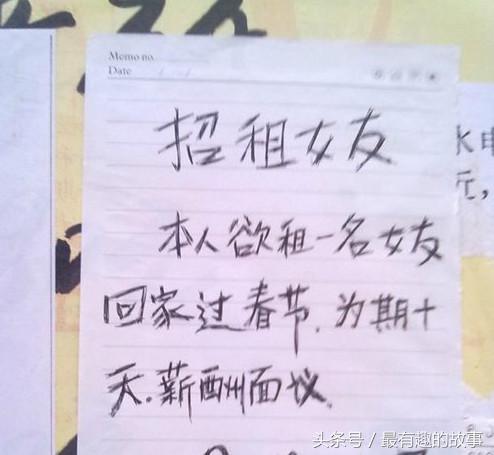 Memo no.
Date
招租女友
水电
元，
本人欲租一名女友
回家过春节，为期十
天.薪酬面议.
头条号 / 最有趣的故事